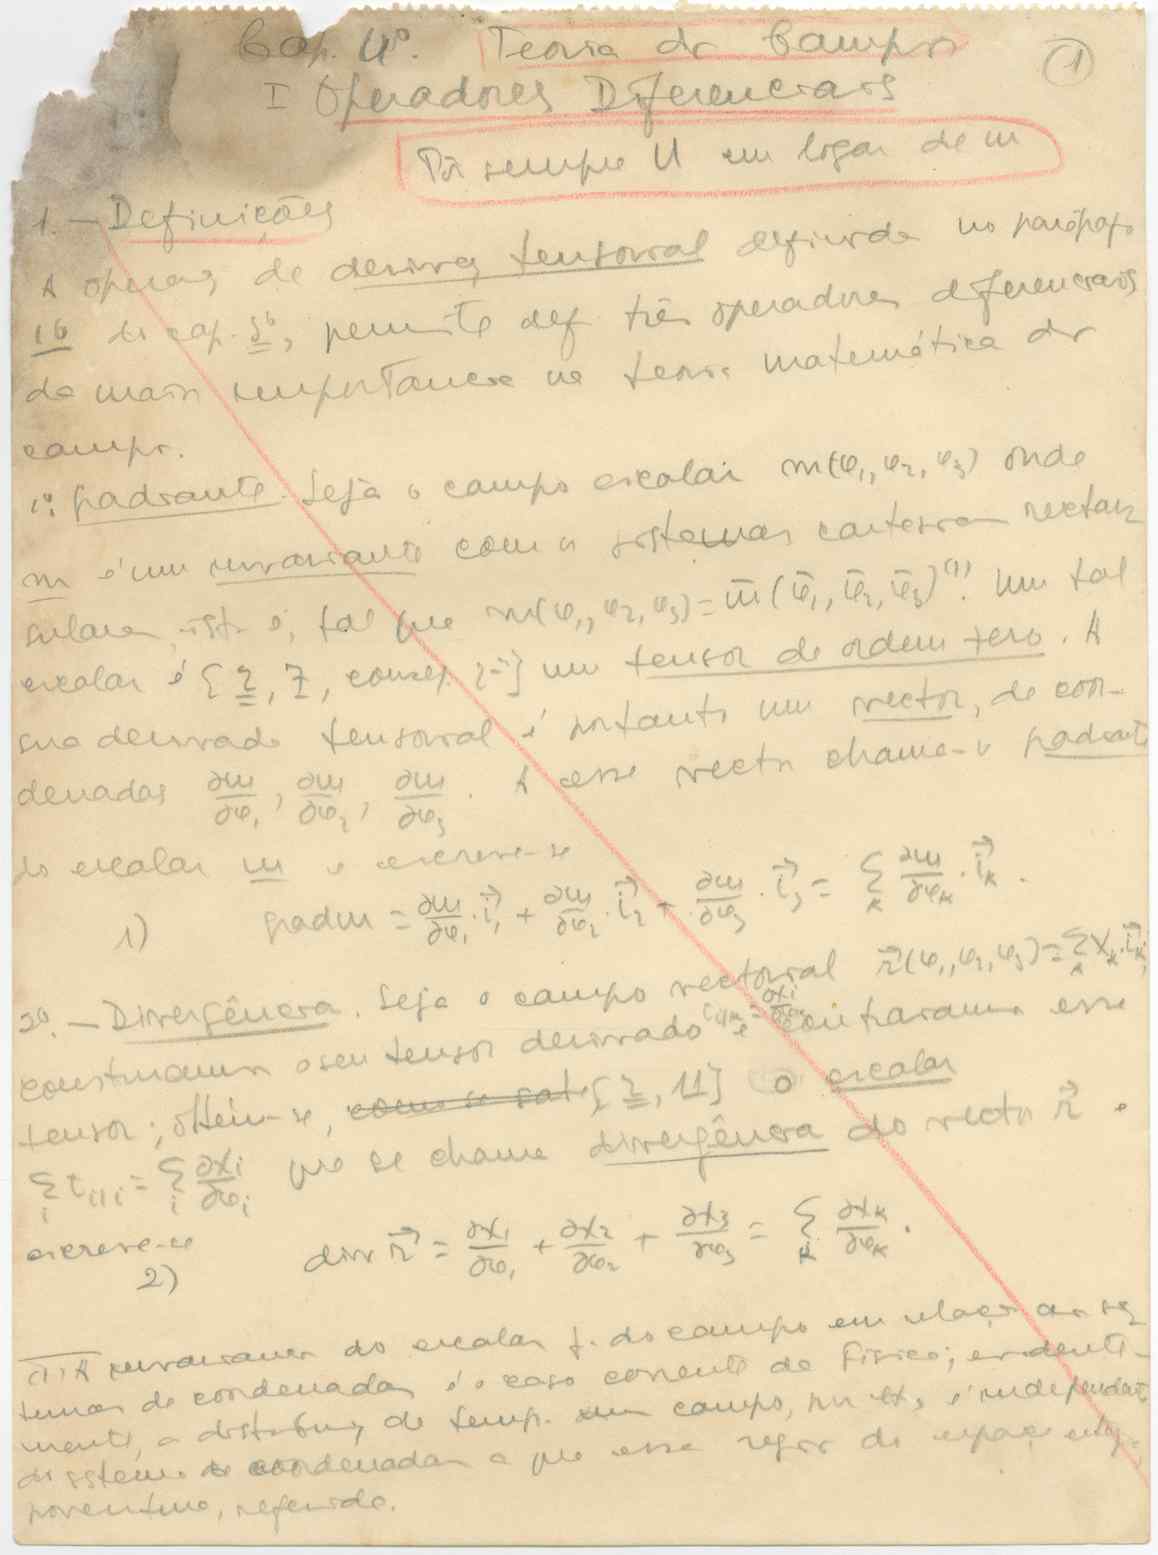 Cap. 4º. Teoria dos Campos
1
I Operadores Diferenciais
Pôr sempre U em logar de m
1. — Definições
A operaç. de derivaç. tensorial definida no parágrafo
16 do cap. 3º, permite def. três operadores diferenciais
da maior importância na teoria matemática dos
campos.
1º: gradiante. Seja o campo escalar m(φ₁, φ₂, φ₃) onde
m é um invariante com os sistemas cartesianos rectan
gulares, isto é, tal que m(φ₁, φ₂, φ₃) = m̄(φ̄₁, φ̄₂, φ̄₃)⁽¹⁾. Um tal
escalar é [§, 7, conseq. ] um tensor de ordem zero. A
sua derivada tensorial é portanto um vector, de coor-
denadas ∂m/∂φ₁, ∂m/∂φ₂, ∂m/∂φ₃. A esse vector chama-se gradiante
do escalar m e escreve-se
1) grad m = ∂m/∂φ₁ · i⃗₁ + ∂m/∂φ₂ · i⃗₂ + ∂m/∂φ₃ · i⃗₃ = Σₖ ∂m/∂φₖ · i⃗ₖ.
2º. — Divergência. Seja o campo vectorial r⃗(φ₁, φ₂, φ₃) = Σₖ Xₖ · i⃗ₖ;
construamos o seu tensor derivado t i|k = ∂Xi/∂φk e contraiamos esse
tensor; obtém-se, como se sabe [§, 11] o escalar
Σᵢ t i|i = Σᵢ ∂Xi/∂φi que se chama divergência do vector r⃗ e
escreve-se
2) div r⃗ = ∂X₁/∂φ₁ + ∂X₂/∂φ₂ + ∂X₃/∂φ₃ = Σₖ ∂Xₖ/∂φₖ.
(1) A invariancia do escalar f. do campo em relação aos sis
temas de coordenadas é o caso corrente da Física; evidente-
mente, a distribuiç. de temp. num campo, por ex., é independente
do sistema de coordenadas a que essa região do espaço esteja,
porventura, referida.